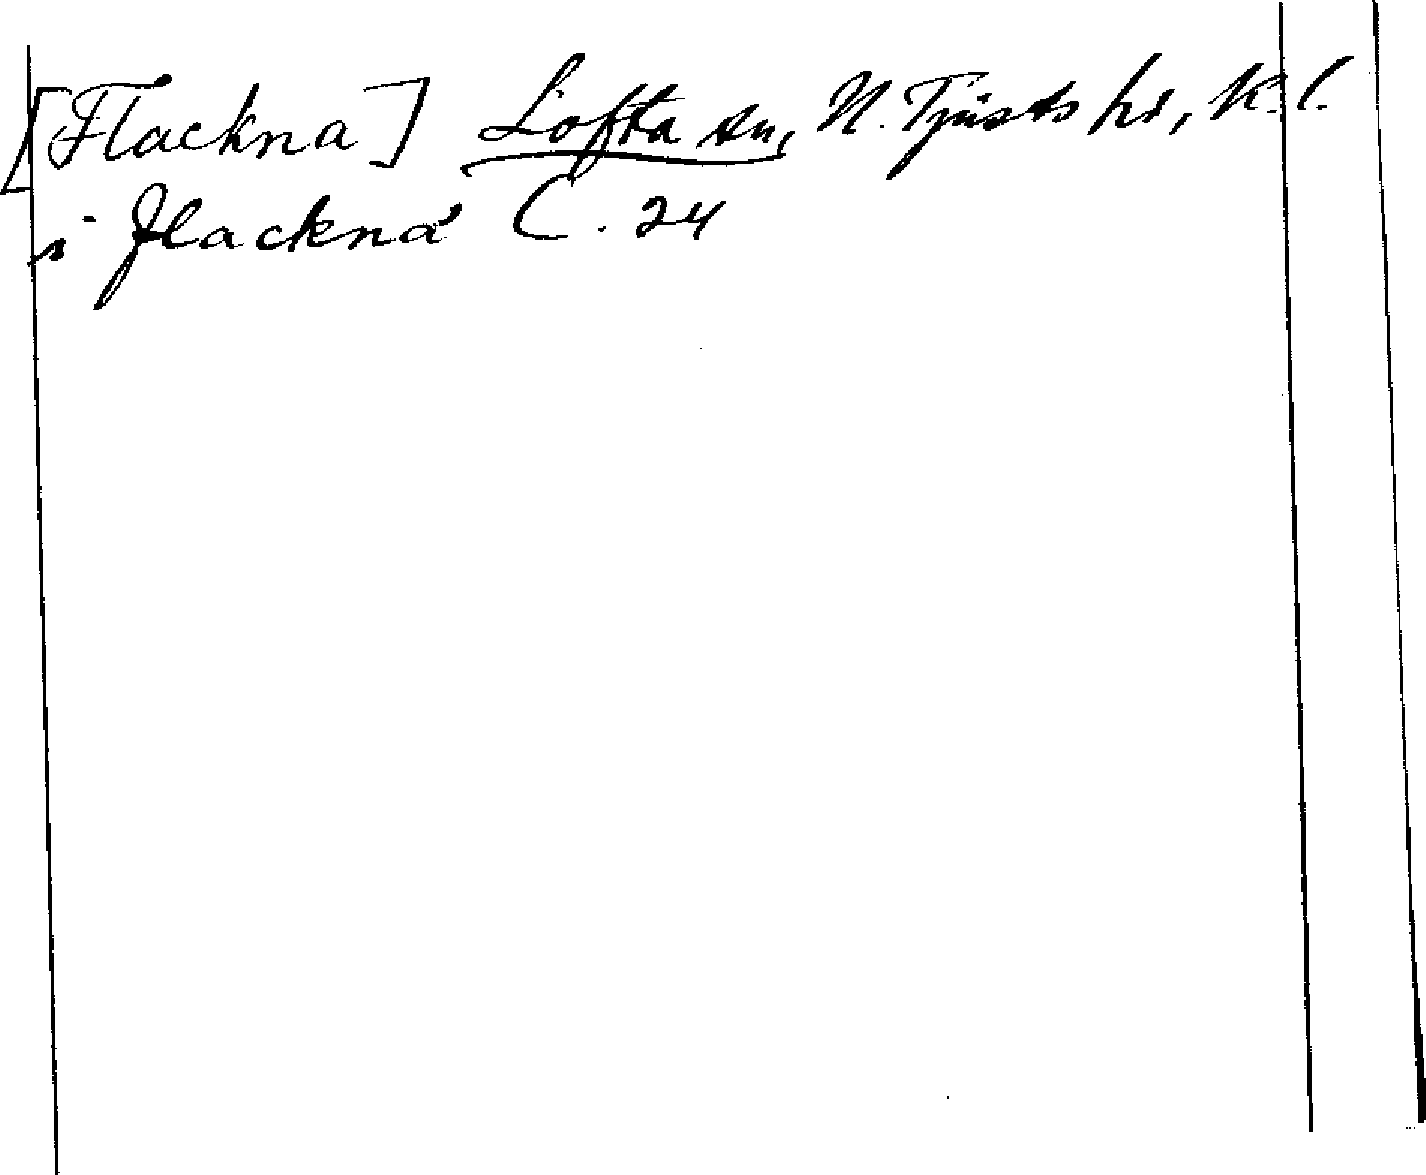 [Flackna] Lofta sn, N. Tjusts hd, K. l.
i flackna C. 24